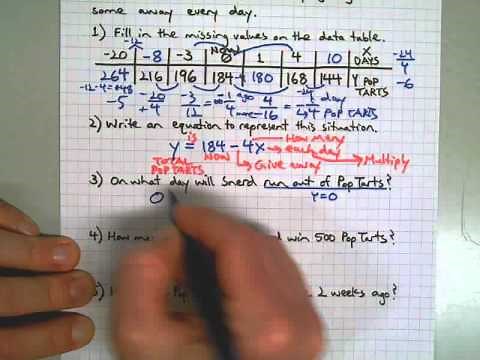 some away every day.
1) Fill in the missing values on the data table.
-12 NOW
-20 -8 -3 0 1 4 10 X DAYS -24
264 216 196 184 180 168 144 Y POP TARTS -6
-12 -4 = +48
-5 -20 +4 -3 12 -1 ago 4 4 more -16 -24 day Pop TARTS
2) Write an equation to represent this situation.
is How many
y = 184 - 4x each day
TOTAL POP TARTS NOW Give away Multiply
3) On what day will Snerd run out of Pop Tarts?
0 Y=0
4) How d win 500 Pop Tarts?
2 weeks ago?